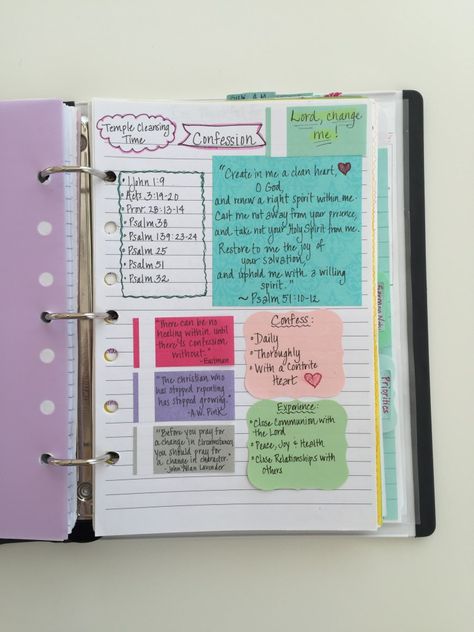 Temple Cleansing
Time
Confession
Lord, change
me!
1 John 1:9
Acts 3:19-20
Prov. 28:13-14
Psalm 38
Psalm 139:23-24
Psalm 25
Psalm 51
Psalm 32
"Create in me a clean heart,
O God,
and renew a right spirit within me.
Cast me not away from your presence,
and take not your Holy Spirit from me.
Restore to me the joy of
your salvation,
and uphold me with a willing
spirit."
~ Psalm 51:10-12
"There can be no
healing within until
there is confession
without."
-Eastman
"The christian who
has stopped repenting
has stopped growing."
-A.W. Pink
"Before you pray for
a change in circumstances,
you should pray for
a change in character."
-John Alan Lavender
Confess:
• Daily
• Thoroughly
• With a Contrite
Heart
Experience:
• Close Communion with
the Lord
• Peace, Joy & Health
• Close Relationships with
others
Priorities